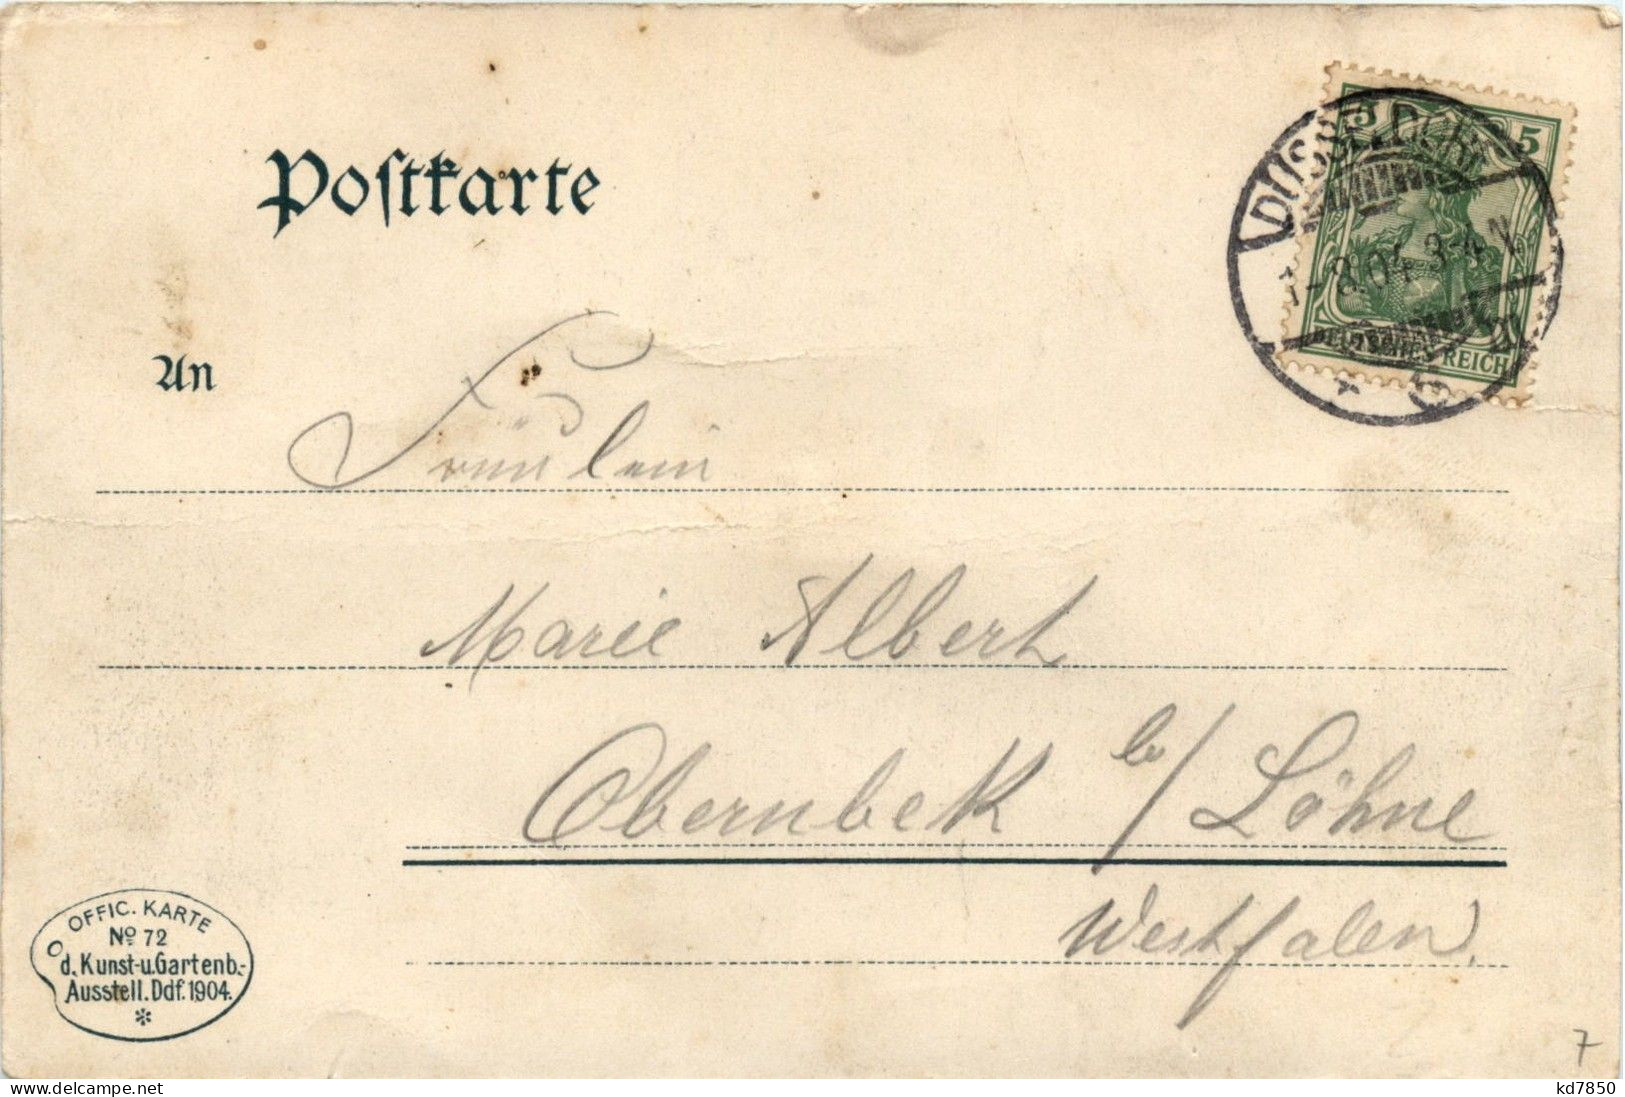 Postkarte
5 5
DÜSSELDORF
1-8.04.3-4N.
DEUTSCHES REICH
An
Fräulein
Marie Albert
Obernbeck b/ Löhne
Westfalen.
OFFIC. KARTE
No 72
d. Kunst-u. Gartenb.-
Ausstell. Ddf. 1904.
*
7
www.delcampe.net
kd7850